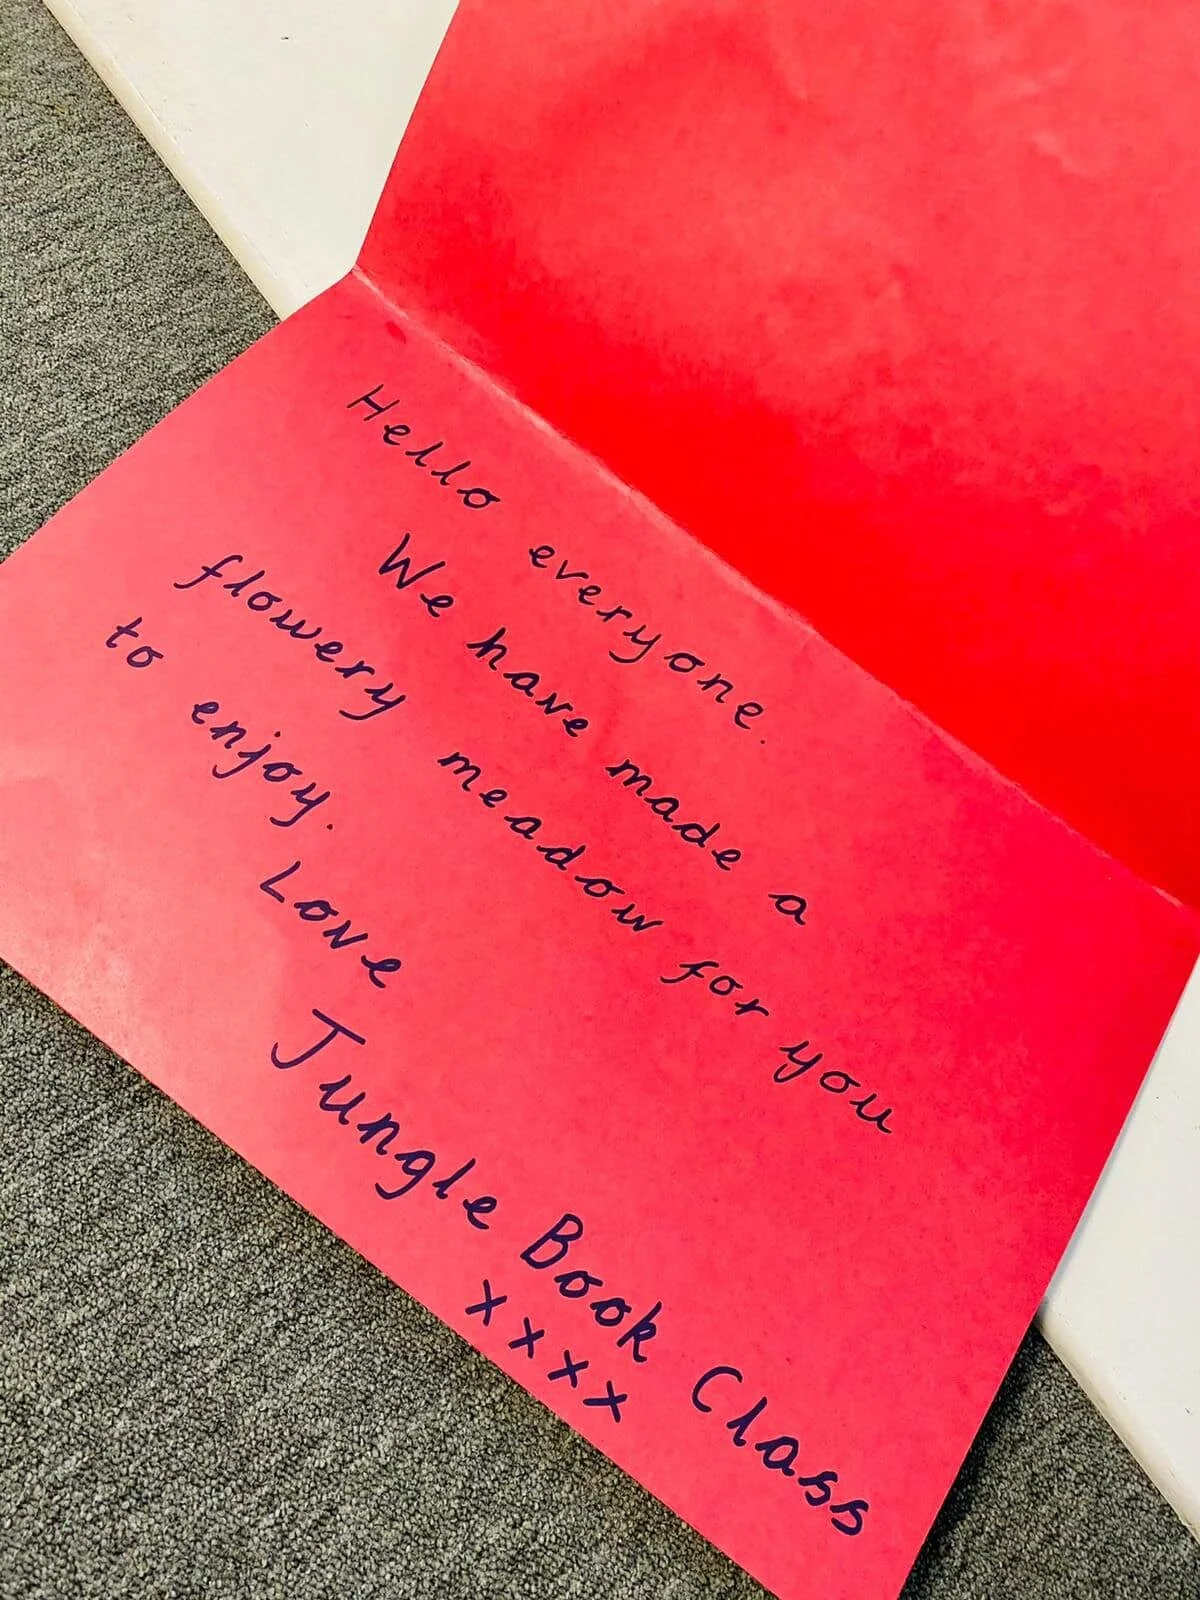 Hello everyone.
We have made a
flowery meadow for you
to enjoy.
Love
Jungle Book Class
xxxx